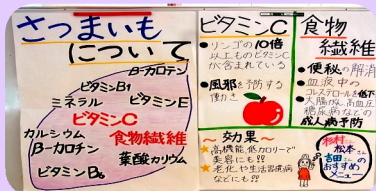 さつまいも
について
β-カロテン
ビタミンB1
ミネラル ビタミンE
ビタミンC
カルシウム 食物繊維
β-カロチン
葉酸カリウム
ビタミンB6
ビタミンC
●リンゴの10倍
以上ものビタミンC
が含まれている
●風邪を予防する
働き
～効果～
★高機能、低カロリーで
美容にも!!
★老化や生活習慣病
などにも!!
食物
繊維
●便秘の解消
●血液中の
コレステロールを低下
大腸がん、高血圧
糖尿病などの
成人病予防
杉村さん
松本さん
吉田さん
のおすすめ
メニュー